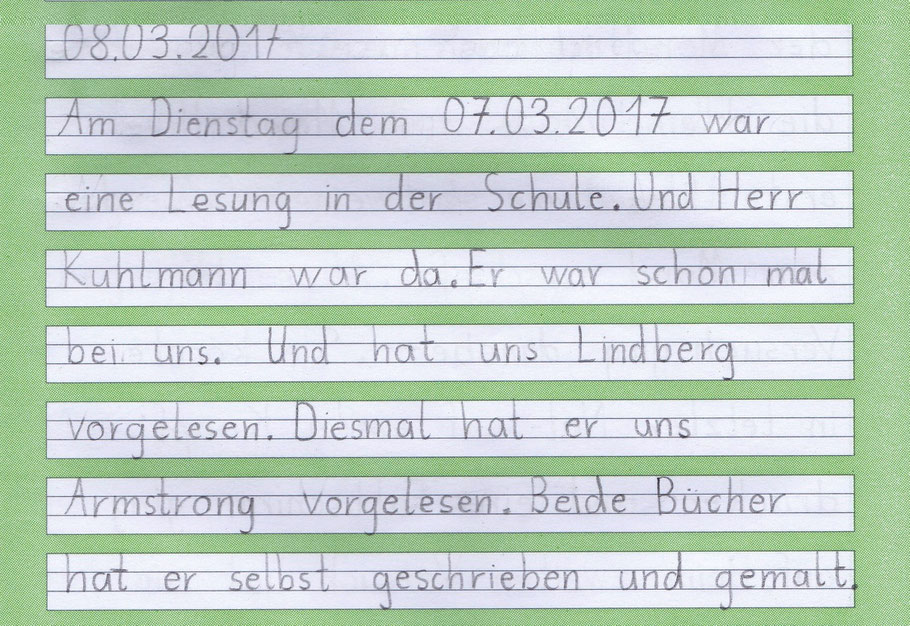 08.03.2017
Am Dienstag dem 07.03.2017 war
eine Lesung in der Schule. Und Herr
Kuhlmann war da. Er war schon mal
bei uns. Und hat uns Lindberg
vorgelesen. Diesmal hat er uns
Armstrong vorgelesen. Beide Bücher
hat er selbst geschrieben und gemalt.